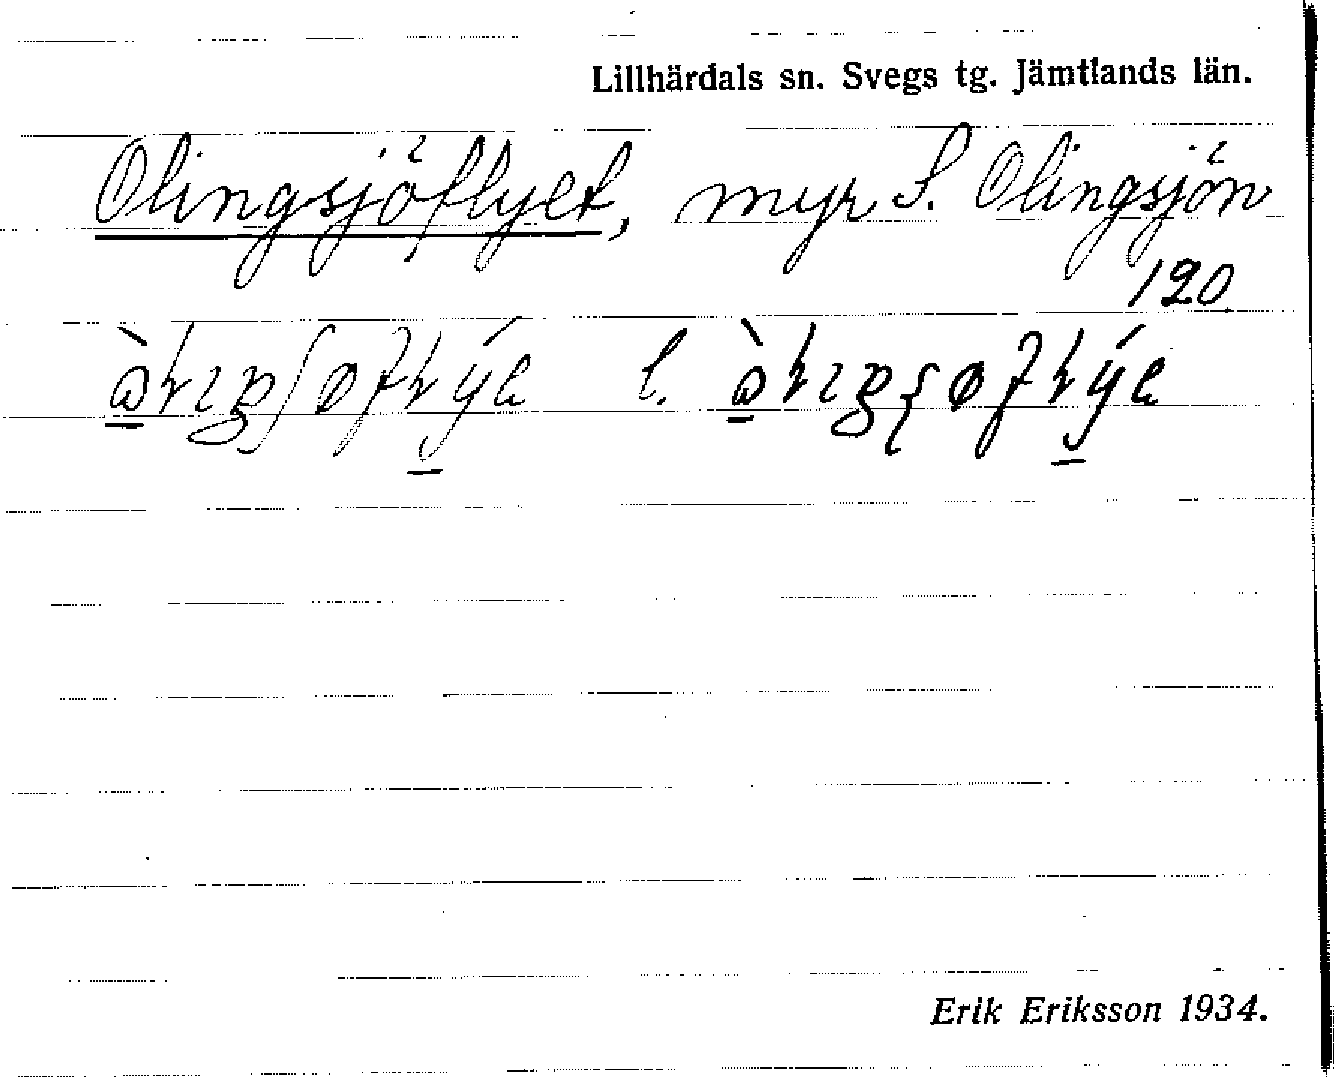 Lillhärdals sn. Svegs tg. Jämtlands län.
Olingsjöflyet, myr S. Olingsjön
120
l.
Erik Eriksson 1934.